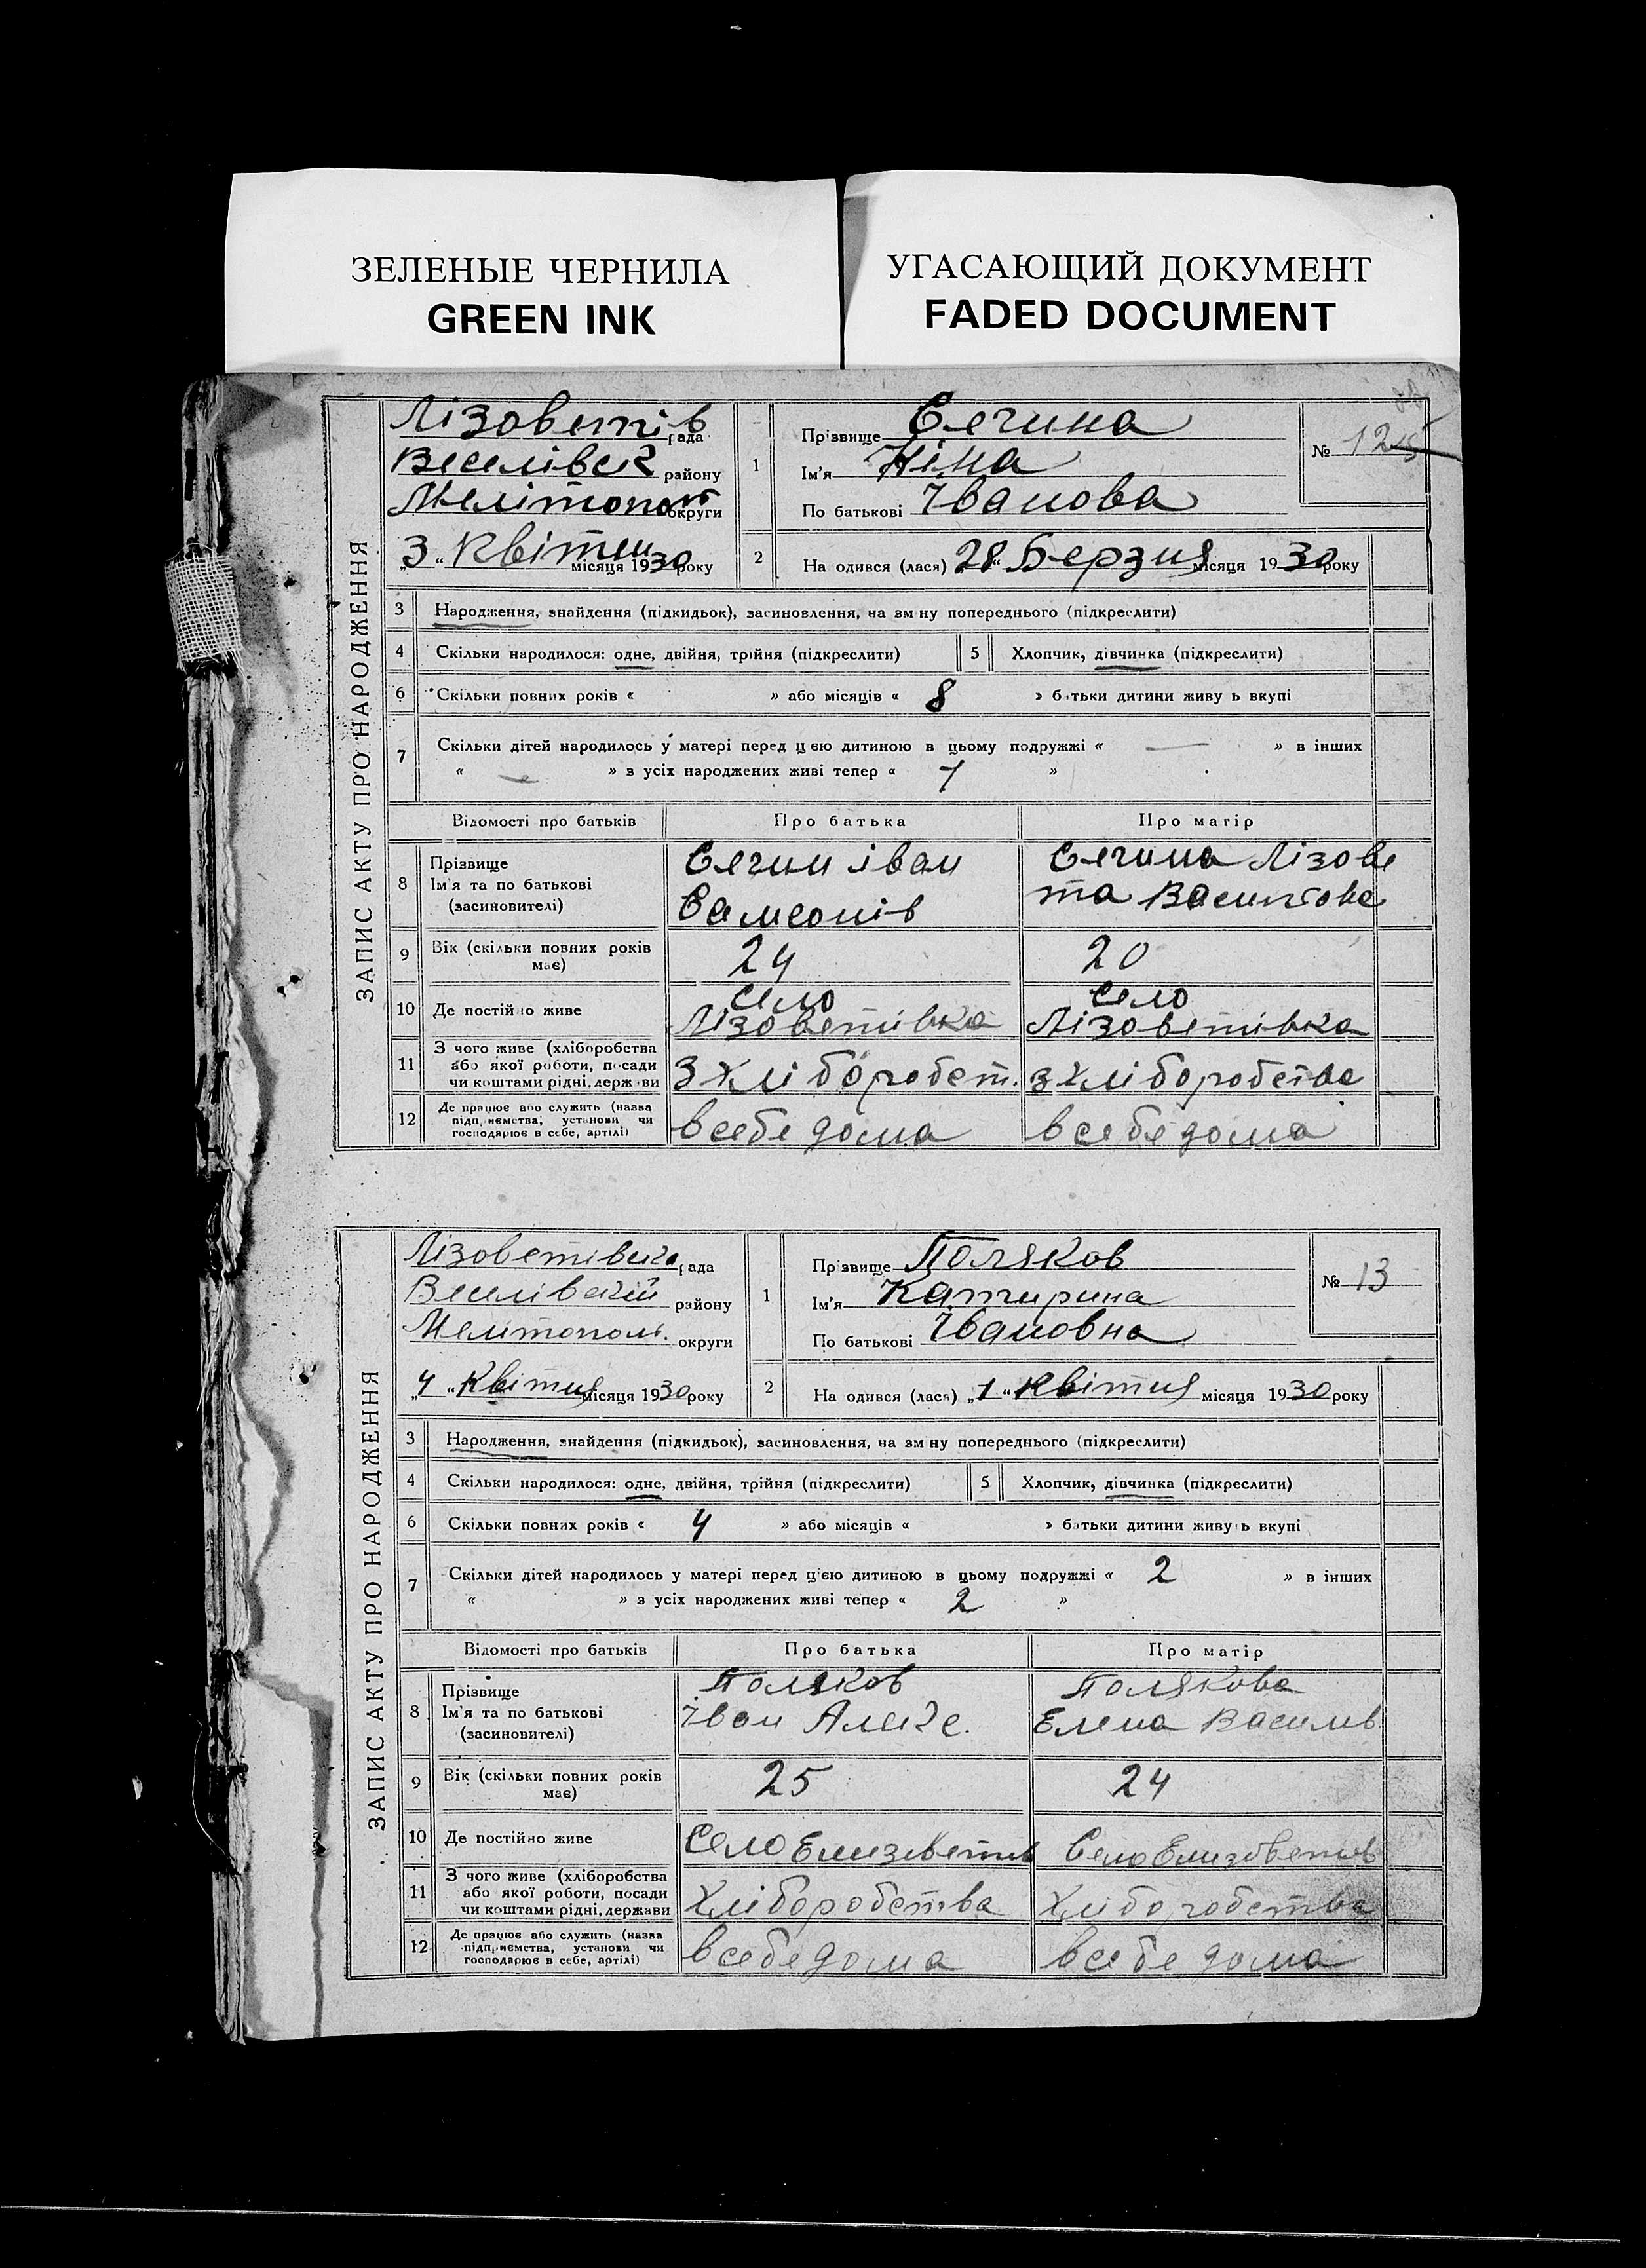 ЗЕЛЕНЫЕ ЧЕРНИЛА
GREEN INK
УГАСАЮЩИЙ ДОКУМЕНТ
FADED DOCUMENT
ЗАПИС АКТУ ПРО НАРОДЖЕННЯ
Лізоветів рада
Веселівск району
Мелітопол округи
„3“ Квітен місяця 1930 року
1 Прізвище Сягина
Ім'я Ніна
По батькові Іванова
№ 12
2 На одився (лася) „28“ Березня місяця 1930 року
3 Народження, знайдення (підкидьок), засиновлення, на зм ну попереднього (підкреслити)
4 Скільки народилося: одне, двійня, трійня (підкреслити)
5 Хлопчик, дівчинка (підкреслити)
6 Скільки повних років « » або місяців « 8 » батьки дитини живу ь вкупі
7 Скільки дітей народилось у матері перед цією дитиною в цьому подружжі « — » в інших
« — » з усіх народжених живі тепер « 1 »
Відомості про батьків Про батька Про матір
8 Прізвище
Ім'я та по батькові
(засиновителі)
Сягин іван
Самсонів
Сягина Лізове
та Василова
9 Вік (скільки повних років має) 24 20
10 Де постійно живе
село
Лізоветівка
село
Лізоветівка
11 З чого живе (хліборобства
або якої роботи, посади
чи коштами рідні, держави
З хліборобст. з хліборобства
12 Де працює або служить (назва
підприємства, установи чи
господарює в себе, артілі)
в себе дома в себе дома
ЗАПИС АКТУ ПРО НАРОДЖЕННЯ
Лізоветівска рада
Веселівский району
Мелітополь. округи
„4“ Квітня місяця 1930 року
1 Прізвище Поляков
Ім'я Катирина
По батькові Івановна
№ 13
2 На одився (лася) „1“ Квітня місяця 1930 року
3 Народження, знайдення (підкидьок), засиновлення, на зм ну попереднього (підкреслити)
4 Скільки народилося: одне, двійня, трійня (підкреслити)
5 Хлопчик, дівчинка (підкреслити)
6 Скільки повних років « 4 » або місяців « » батьки дитини живуть вкупі
7 Скільки дітей народилось у матері перед цією дитиною в цьому подружжі « 2 » в інших
« » з усіх народжених живі тепер « 2 »
Відомості про батьків Про батька Про матір
8 Прізвище
Ім'я та по батькові
(засиновителі)
Поляков
Іван Алекс.
Полякова
Елена Василів
9 Вік (скільки повних років має) 25 24
10 Де постійно живе
Село Елизаветів Село Елизаветів
11 З чого живе (хліборобства
або якої роботи, посади
чи коштами рідні, держави
Хліборобства Хліборобства
12 Де працює або служить (назва
підприємства, установи чи
господарює в себе, артілі)
в себе дома в себе дома